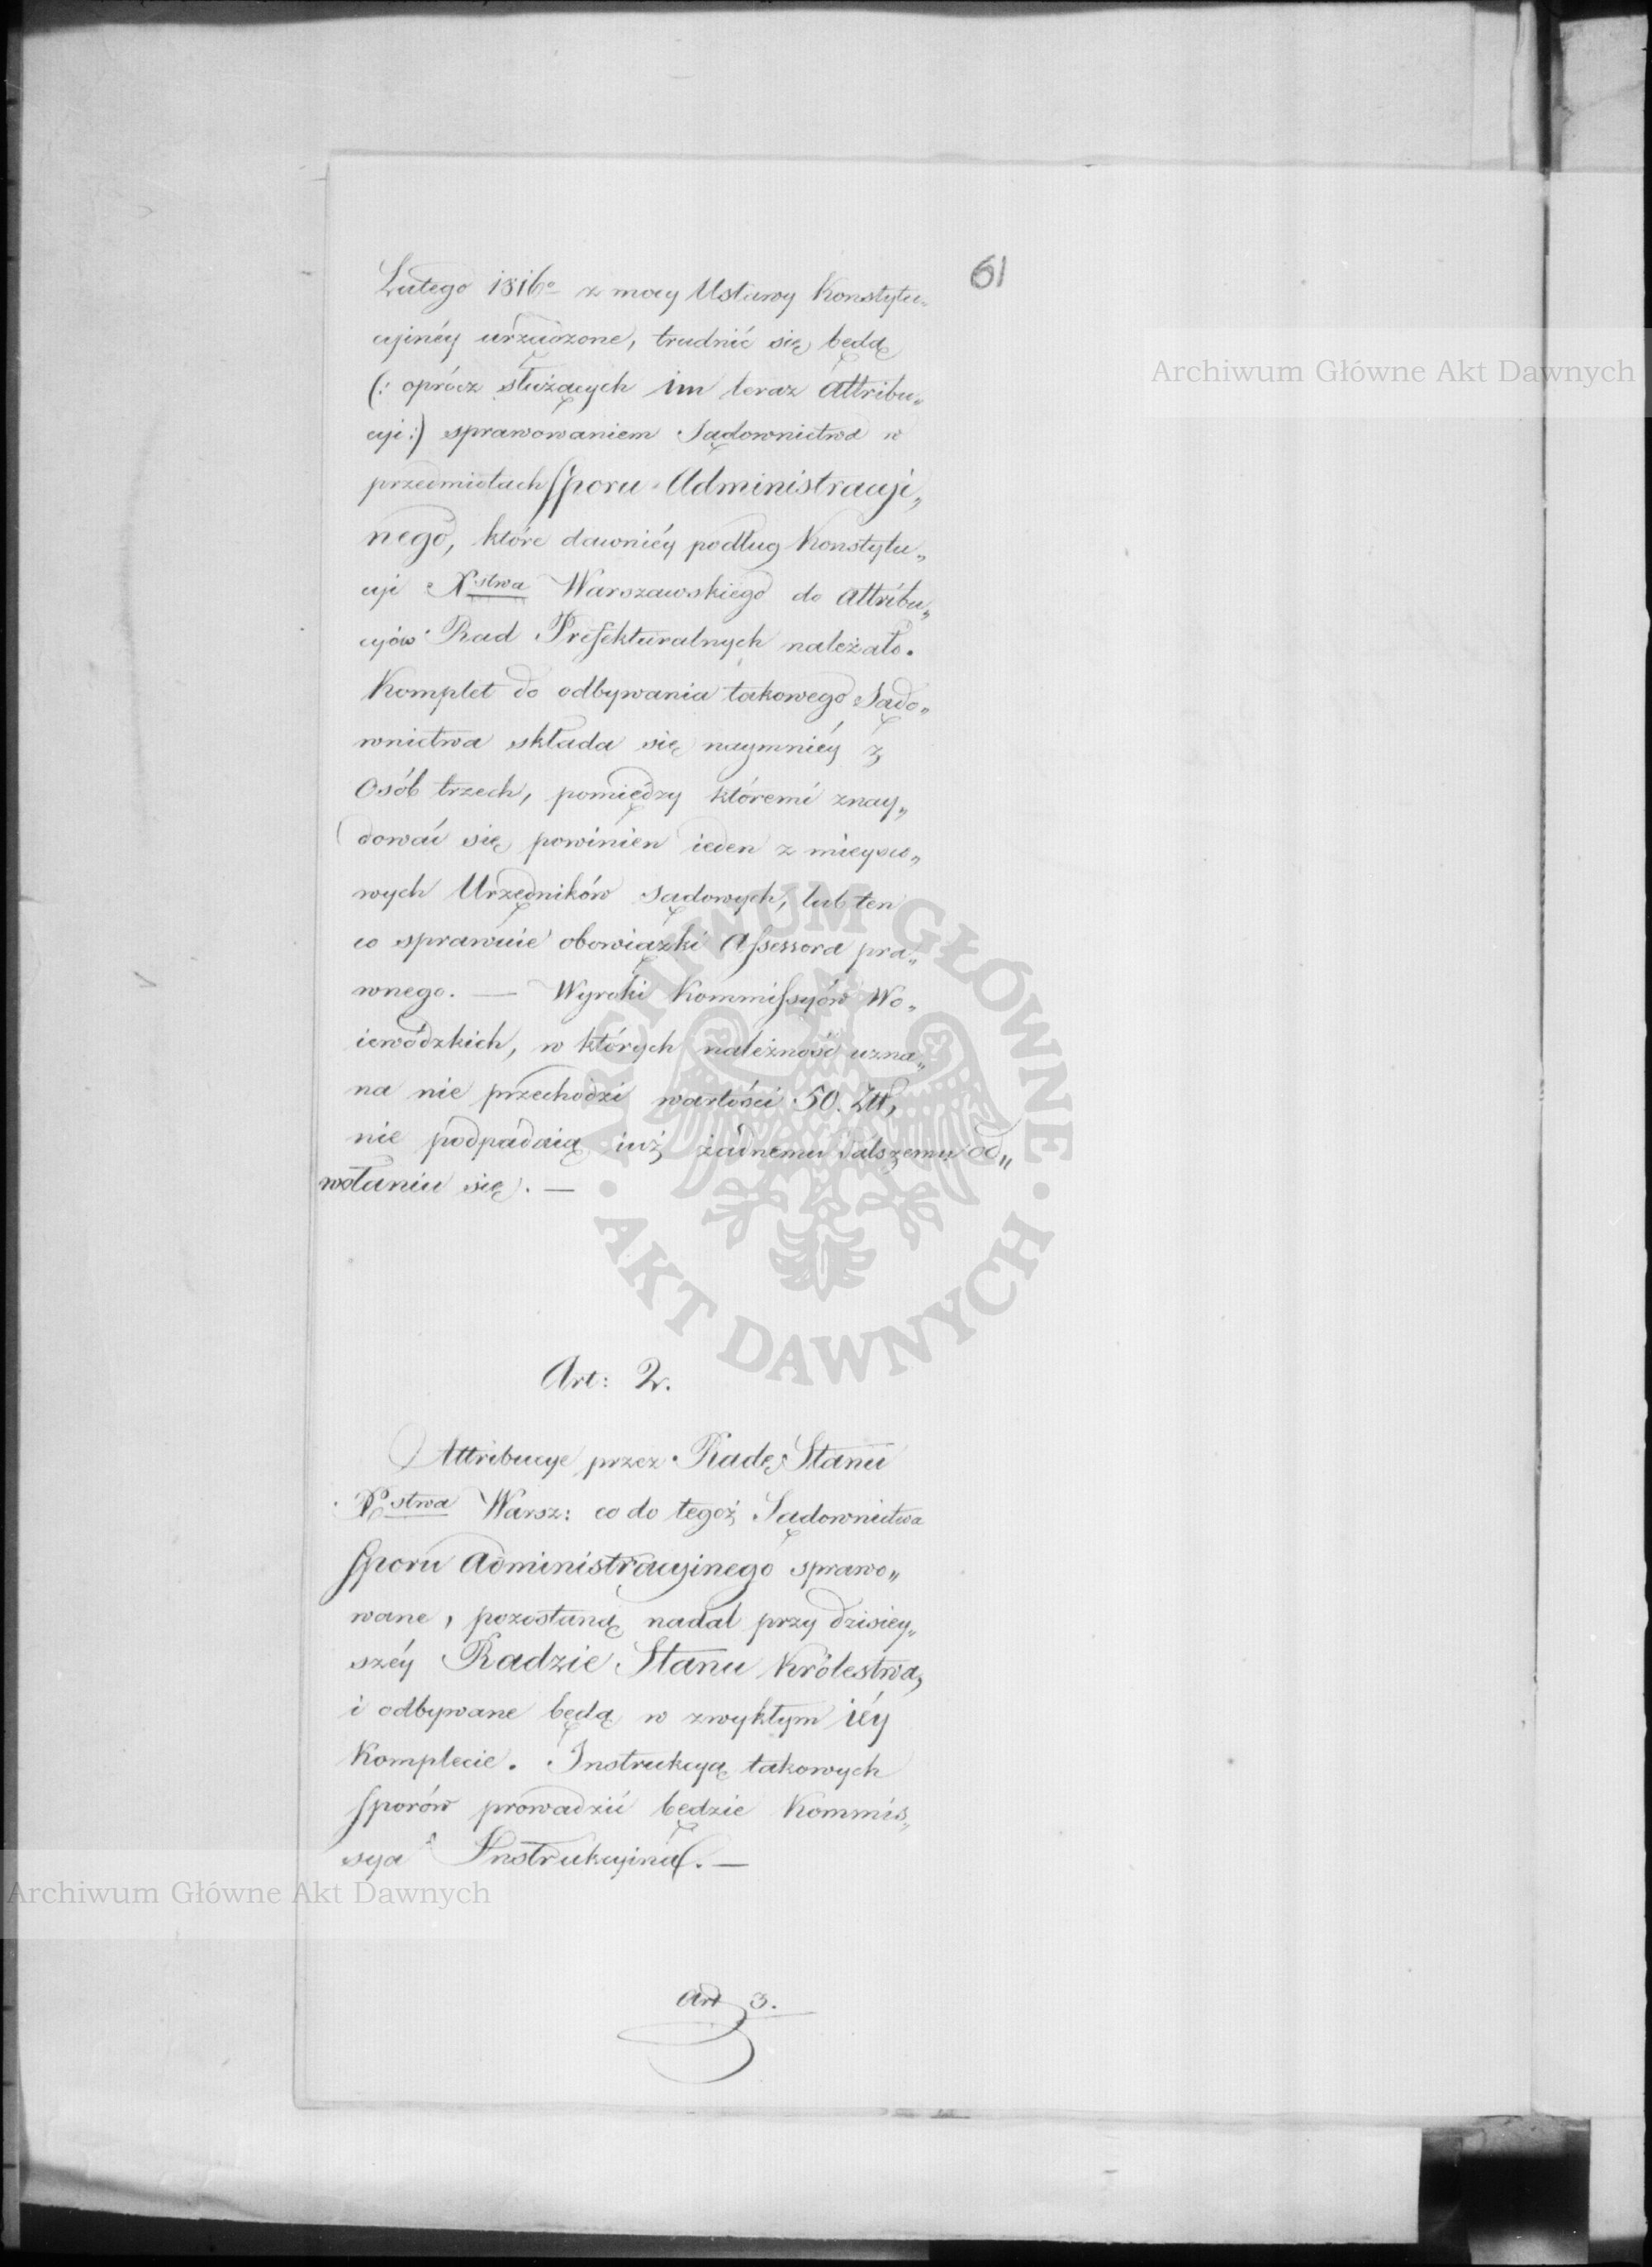 61
Lutego 1816º z mocy Ustawy Konstytu„
cyinéy urządzone, trudnić się będą
(: oprócz służących im teraz Attribu„
cyi :) sprawowaniem Sądownictwa w
przedmiotach Sporu Administracyi„
nego, które dawniéy podług Konstytu„
cyi Xstwa Warszawskiego do Attribu„
cyów Rad Prefekturalnych należało.
Komplet do odbywania takowego Sądo„
wnictwa składa się naymniéy z
Osób trzech, pomiędzy któremi znay„
dować się powinien ieden z mieysco„
wych Urzędników sądowych, lub ten
co sprawuie obowiązki Assessora pra„
wnego. — Wyroki Kommissyów Wo„
iewódzkich, w których należność uzna„
na nie przechodzi wartości 50. Złł,
nie podpadaią iuż żadnemu dalszemu od„
wołaniu się. —
Art: 2.
Attribucye przez Radę Stanu
Xstwa Warsz: co do tegoż Sądownictwa
Sporu Administracyinego sprawo„
wane, pozostaną nadal przy dzisiey„
széy Radzie Stanu Królestwa,
i odbywane będą w zwykłym iéy
Komplecie. Instrukcyą takowych
sporów prowadzić będzie Kommis„
sya Instrukcyina. —
Art 3.
Archiwum Główne Akt Dawnych
ARCHIWUM GŁÓWNE
AKT DAWNYCH
Archiwum Główne Akt Dawnych